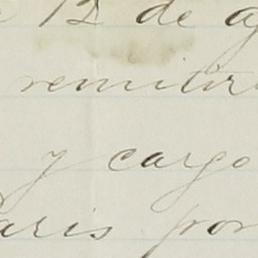 12 de a
remitir
y cargo
aris por